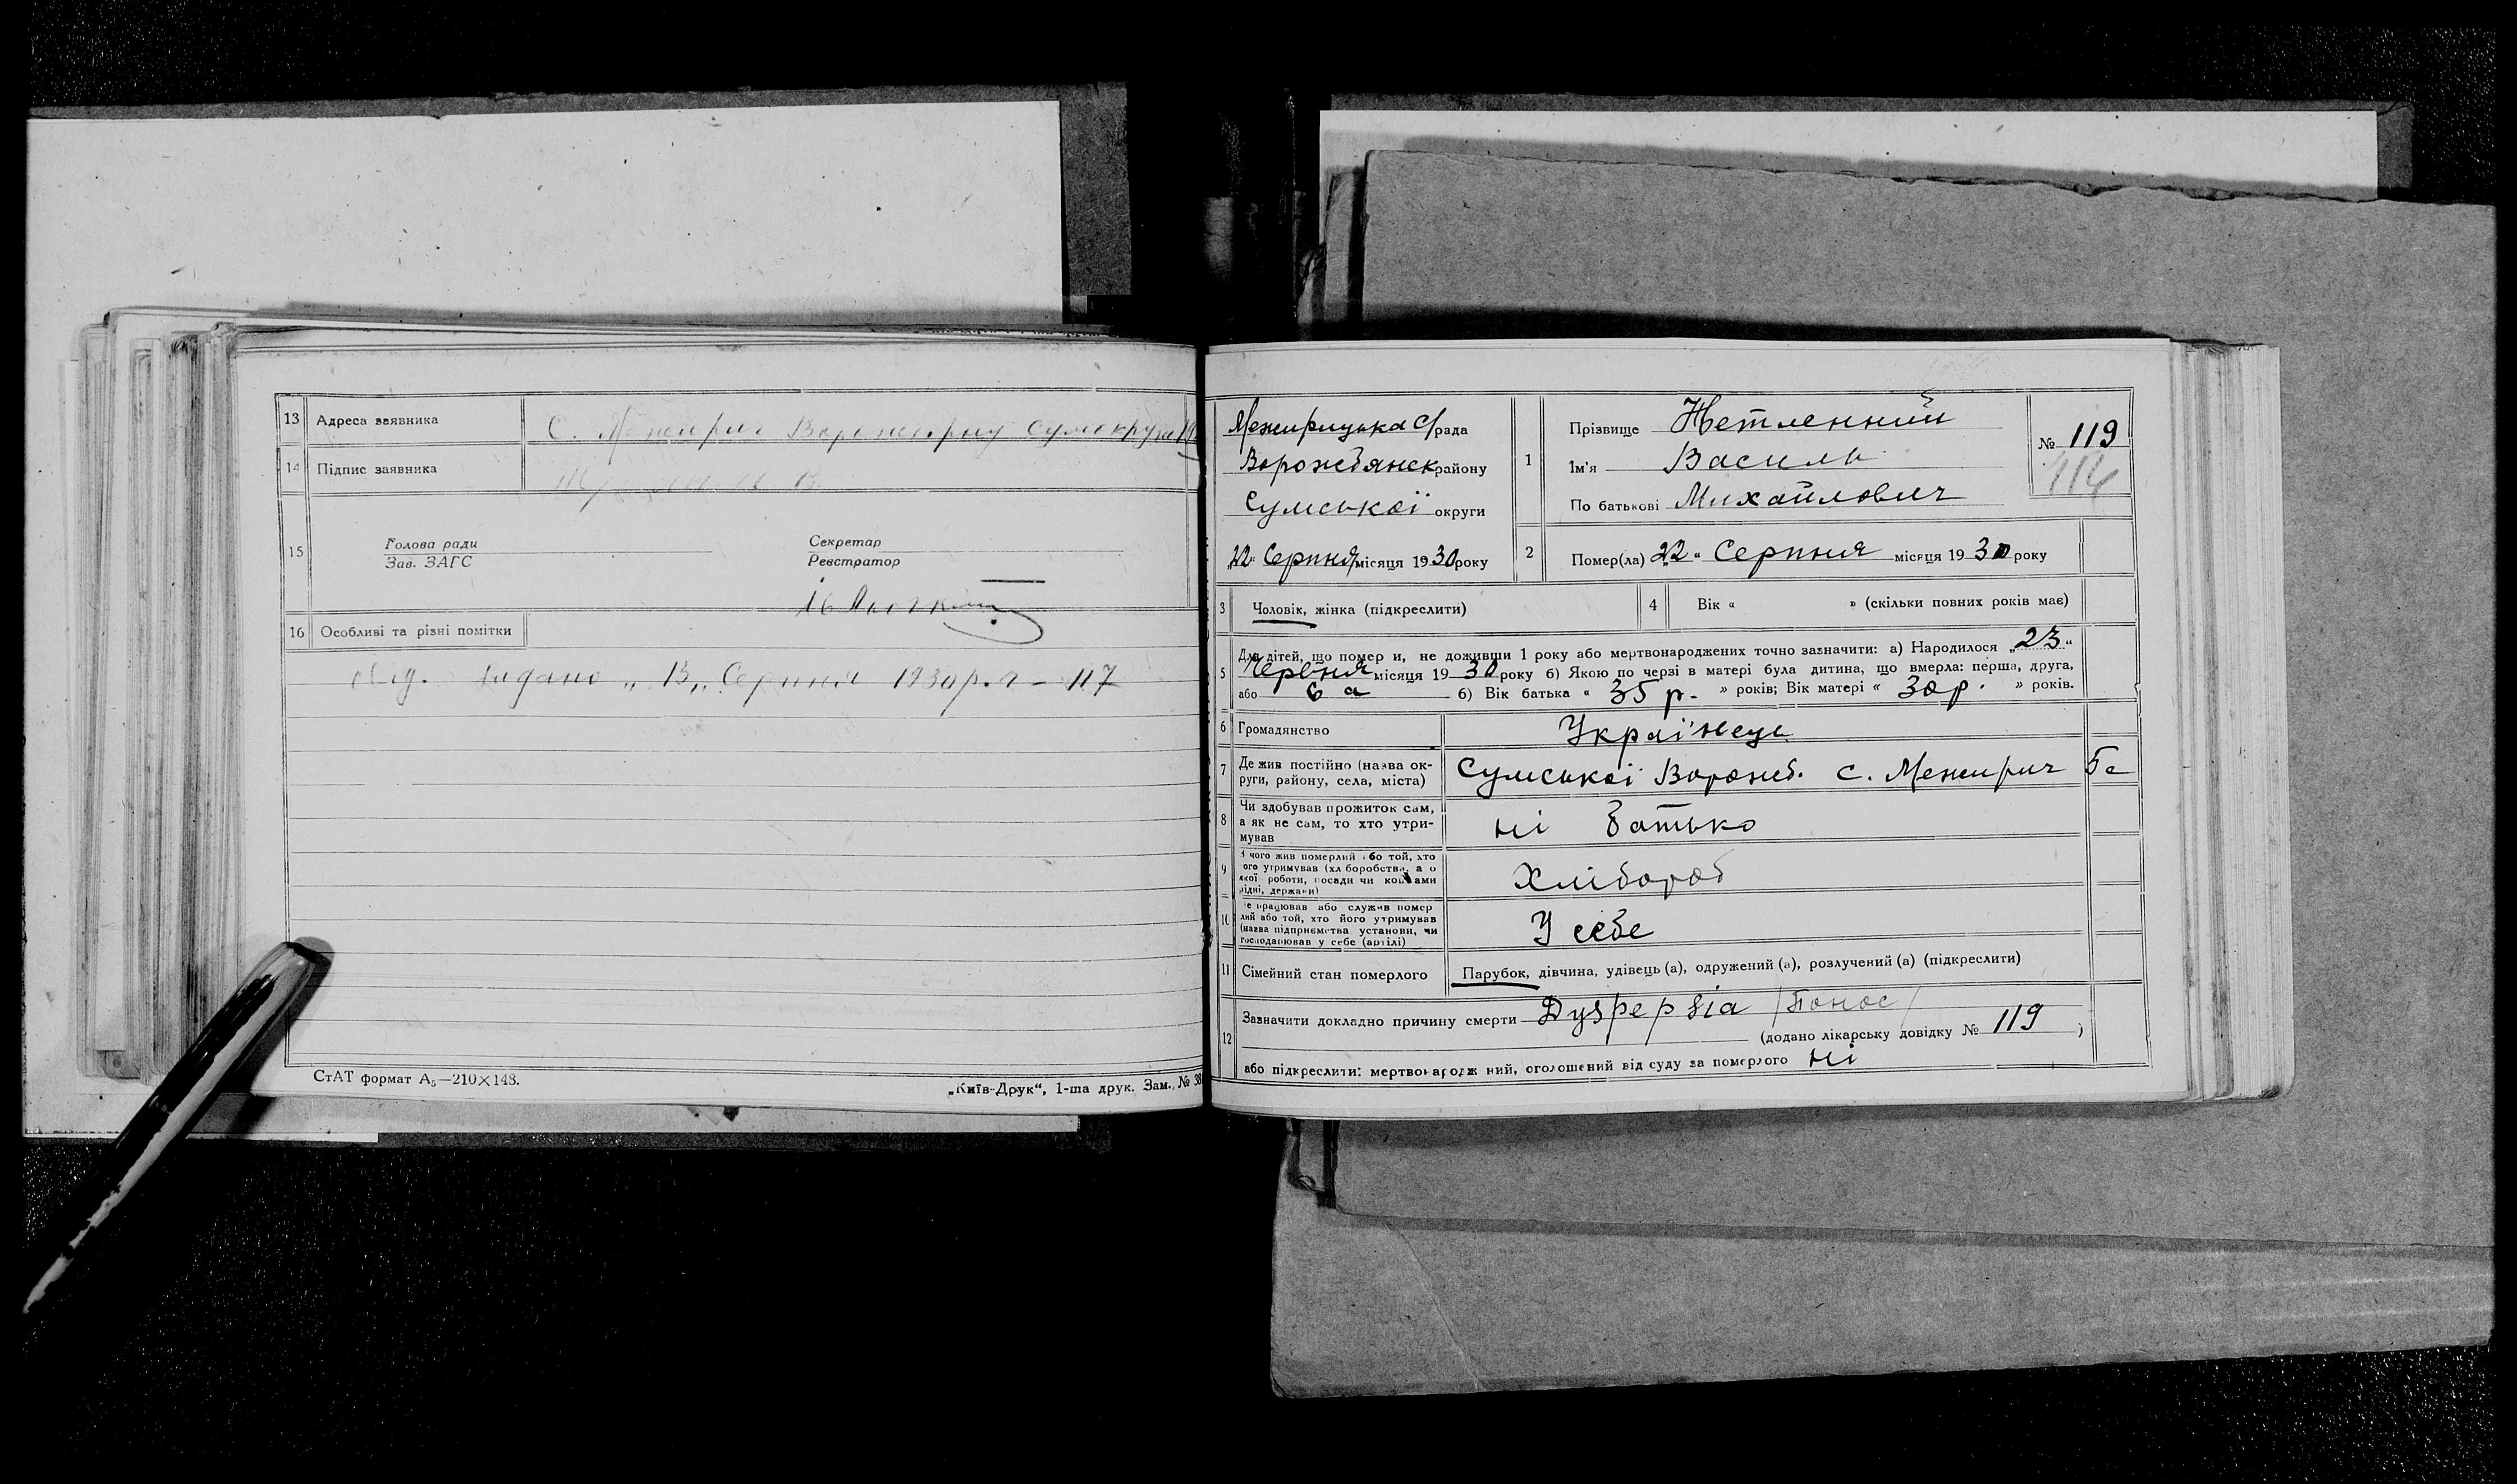 13 Адреса заявника С. Межирич Ворожб. р-ну Сумокруги
14 Підпис заявника
15 Голова ради Секретар
Зав. ЗАГС Реєстратор
16 Особливі та різні помітки
видано „13„ Серпня 1930 р. 117
СтАТ формат А₅—210×148.
„Київ-Друк“, 1-ша друк. Зам. № 38
Межирицька С/рада
Ворожбянськ району
Сумської округи
„22“ Серпня місяця 1930 року
1 Прізвище Нетленний
Ім'я Василь
По батькові Михайлович
№ 119
114
2 Помер(ла) „22“ Серпня місяця 1930 року
3 Чоловік, жінка (підкреслити)
4 Вік « » (скільки повних років має)
5 Для дітей, що помер и, не доживши 1 року або мертвонароджених точно зазначити: а) Народилося „23“
Червня місяця 1930 року б) Якою по черзі в матері була дитина, що вмерла: перша, друга,
або 6 а б) Вік батька « 35 р. » років; Вік матері « 30 р. » років.
6 Громадянство Українець
7 Де жив постійно (назва ок-
руги, району, села, міста) Сумської Ворожб. с. Межирич
8 Чи здобував прожиток сам,
а як не сам, то хто утри-
мував ні батько
9 З чого жив померлий або той, хто
його утримував (хліборобства, а о
якої роботи, посади чи коштами
рідні, держави) Хлібороб
10 Де працював або служив помер
лий або той, хто його утримував
(назва підприємства установи, чи
господарював у себе (артілі) У себе
11 Сімейний стан померлого Парубок, дівчина, удівець (а), одружений (а), розлучений (а) (підкреслити)
12 Зазначити докладно причину смерти Dyspepsia /Понос/
(додано лікарську довідку № 119 )
або підкреслити: мертвонародж ний, оголошений від суду за померлого ні